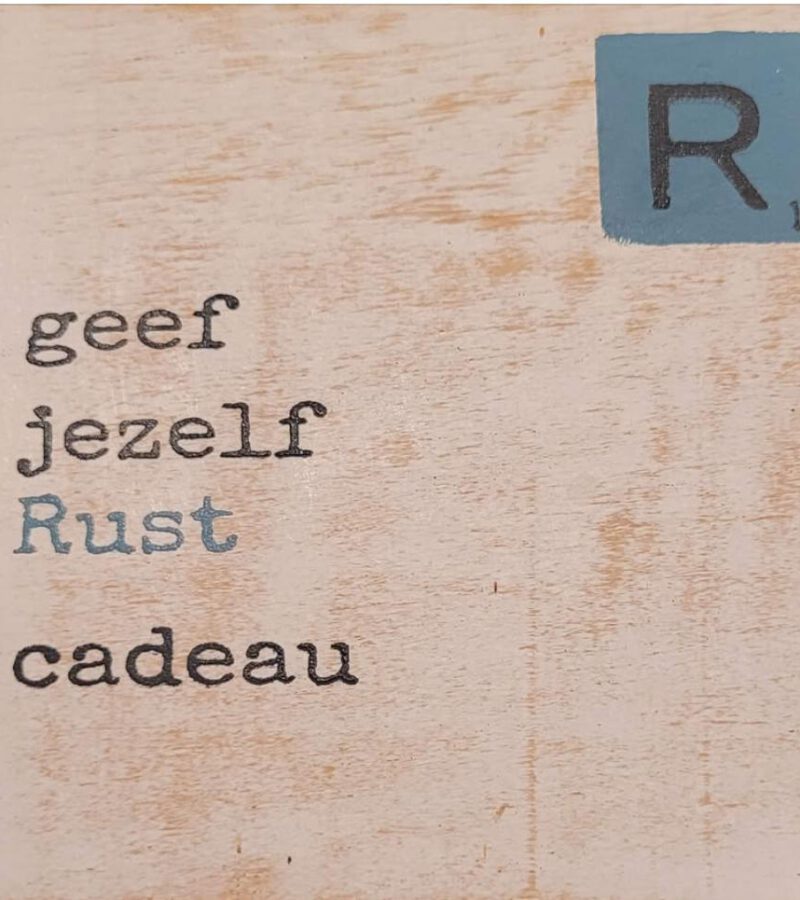 R
geef
jezelf
Rust
cadeau